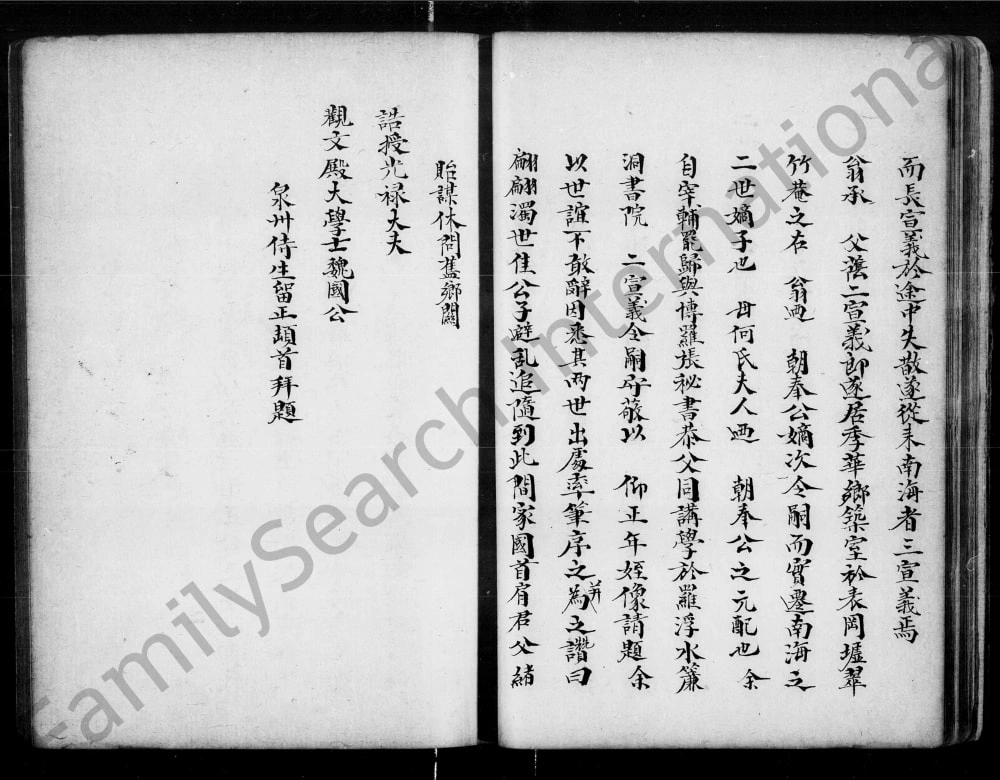 而長宣義於途中失散遂從耒南海者三宣義焉
翁承　父蔭二宣義郎遂居季華鄉築室於表岡墟翠
竹菴之右　翁廼　朝奉公嫡次令嗣而實遷南海之
二世嫡子也　母何氏夫人廼　朝奉公之元配也　余
自宰輔罷歸與博羅張秘書恭父同講學於羅浮水簾
洞書院　二宣義令嗣　敬以　仰正年姪像請題余
以世誼不敢辭因悉其兩世出處率筆序之并為之讚曰
翩翩濁世佳公子避乱追隨到此間家國首肩君父緒
貽謀休問舊鄉關
誥授光禄大夫
觀文殿大學士魏國公
泉州侍生留正頓首拜題
FamilySearch International